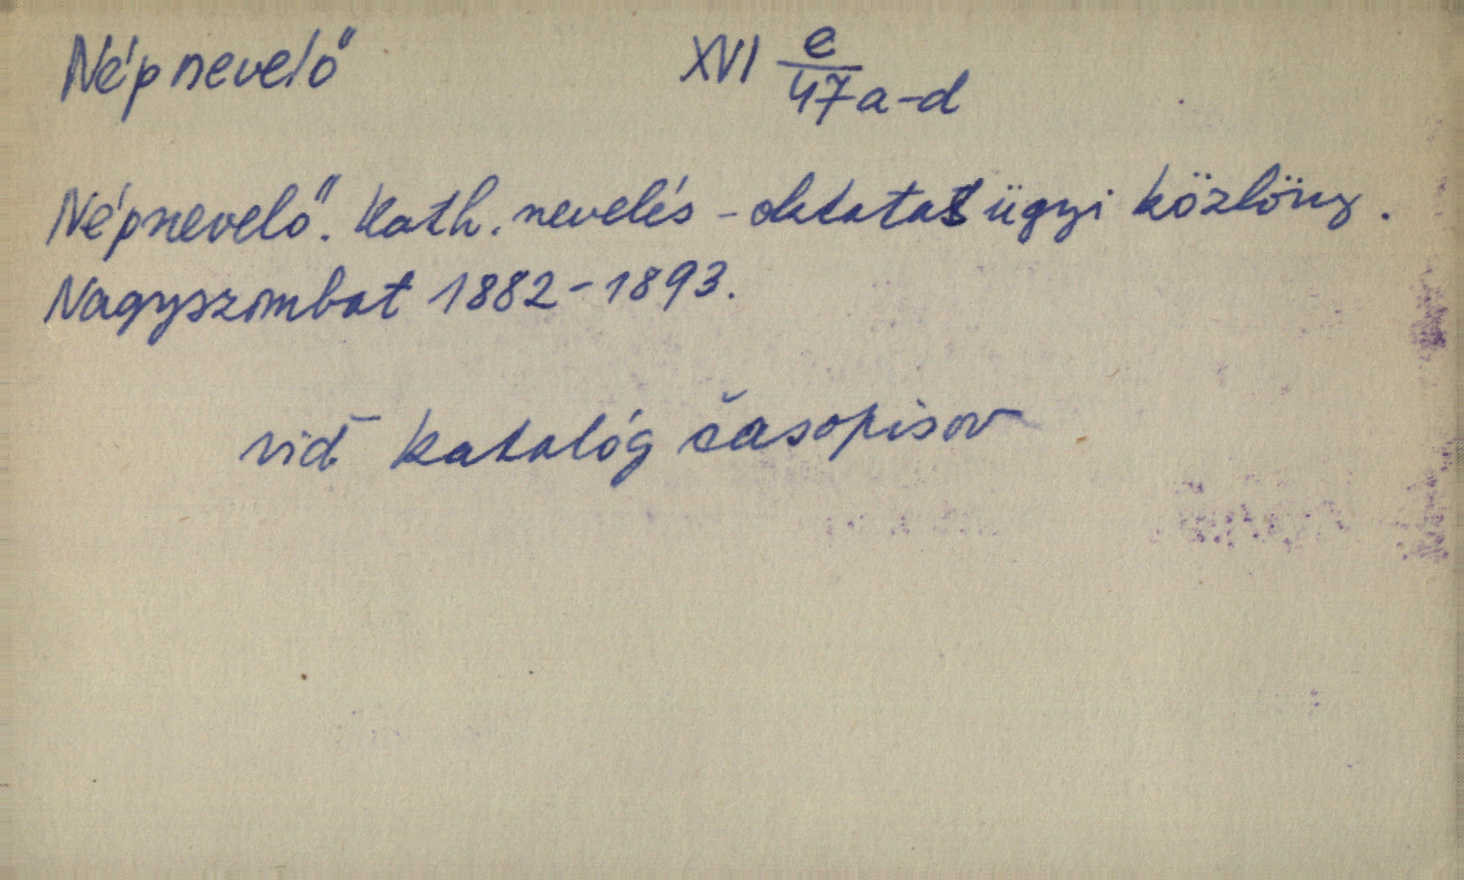 Népnevelő XVI e/47 a-d
Népnevelő. Kath. nevelés-oktatásügyi közlöny.
Nagyszombat 1882-1893.
viď katalóg časopisov